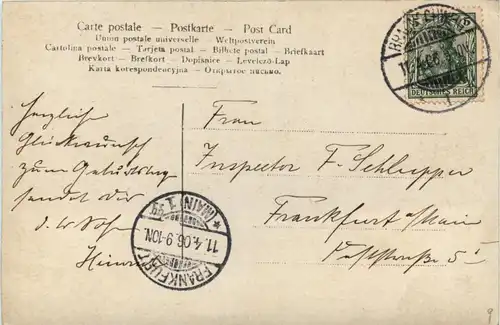 Carte postale – Postkarte – Post Card
Union postale universelle – Weltpostverein
Cartolina postale – Tarjeta postal – Bilhete postal – Briefkaart
Brevkort – Brefkort – Dopisnice – Levelező-Lap
Karta korespondencyjna – Открытое письмо.
DEUTSCHES REICH
Herzliche
Glückwunsch
zum Geburtstag
sendet dir
Frau
Inspector F. Schlupper
Frankfurt a/Main
5
FRANKFURT (MAIN) 1
11.4.06. 9-10N.